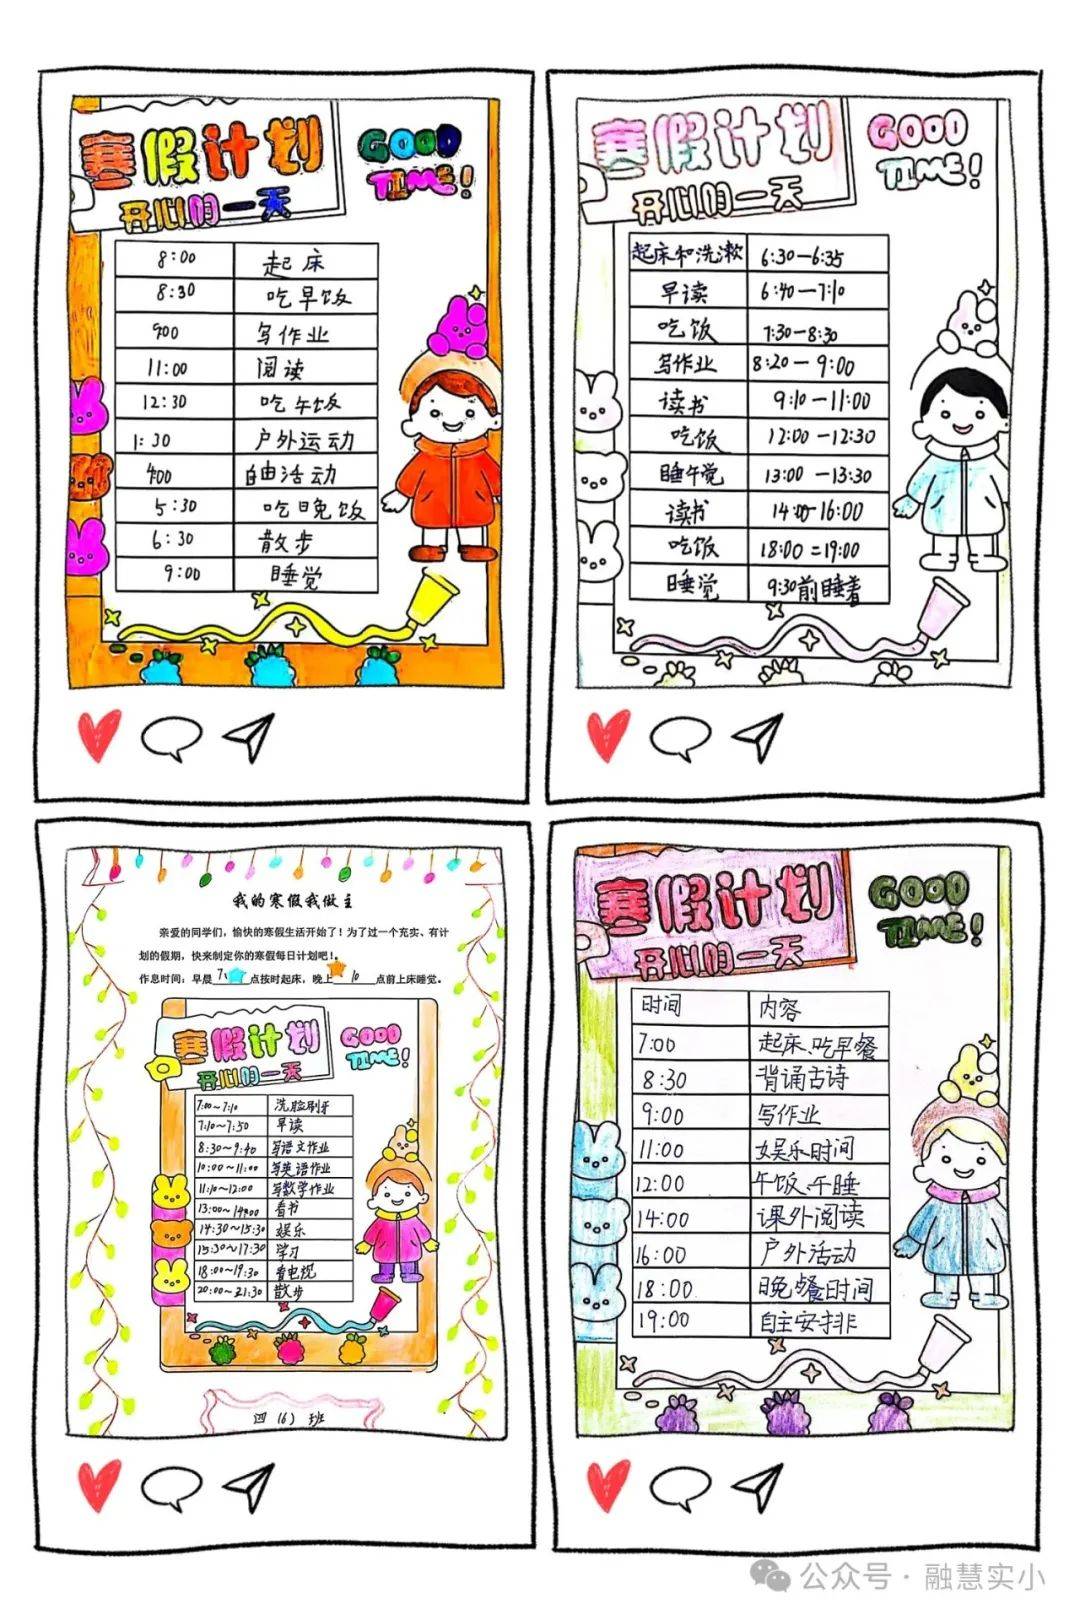 寒假计划
开心的一天
GOOD
TIME!
8:00 起床
8:30 吃早饭
900 写作业
11:00 阅读
12:30 吃午饭
1:30 户外运动
400 自由活动
5:30 吃晚饭
6:30 散步
9:00 睡觉
寒假计划
开心的一天
GOOD
TIME!
起床和洗漱 6:30—6:35
早读 6:40—7:10
吃饭 7:30—8:30
写作业 8:20—9:00
读书 9:10—11:00
吃饭 12:00—12:30
睡午觉 13:00—13:30
读书 14:00-16:00
吃饭 18:00=19:00
睡觉 9:30前睡着
我的寒假我做主
亲爱的同学们，愉快的寒假生活开始了！为了过一个充实、有计
划的假期，快来制定你的寒假每日计划吧！。
作息时间：早晨 7 点按时起床，晚上 10 点前上床睡觉。
寒假计划
开心的一天
GOOD
TIME!
7:00～7:10 洗脸刷牙
7:10～7:50 早读
8:30～9:40 写语文作业
10:00～11:00 写英语作业
11:10～12:00 写数学作业
13:00～14:00 看书
14:30～15:30 娱乐
15:30～17:30 学习
18:00～19:30 看电视
20:00～21:30 散步
四（6）班
寒假计划
开心的一天
GOOD
TIME!
时间 内容
7:00 起床、吃早餐
8:30 背诵古诗
9:00 写作业
11:00 娱乐时间
12:00 午饭、午睡
14:00 课外阅读
16:00 户外活动
18:00 晚餐时间
19:00 自主安排
公众号·融慧实小